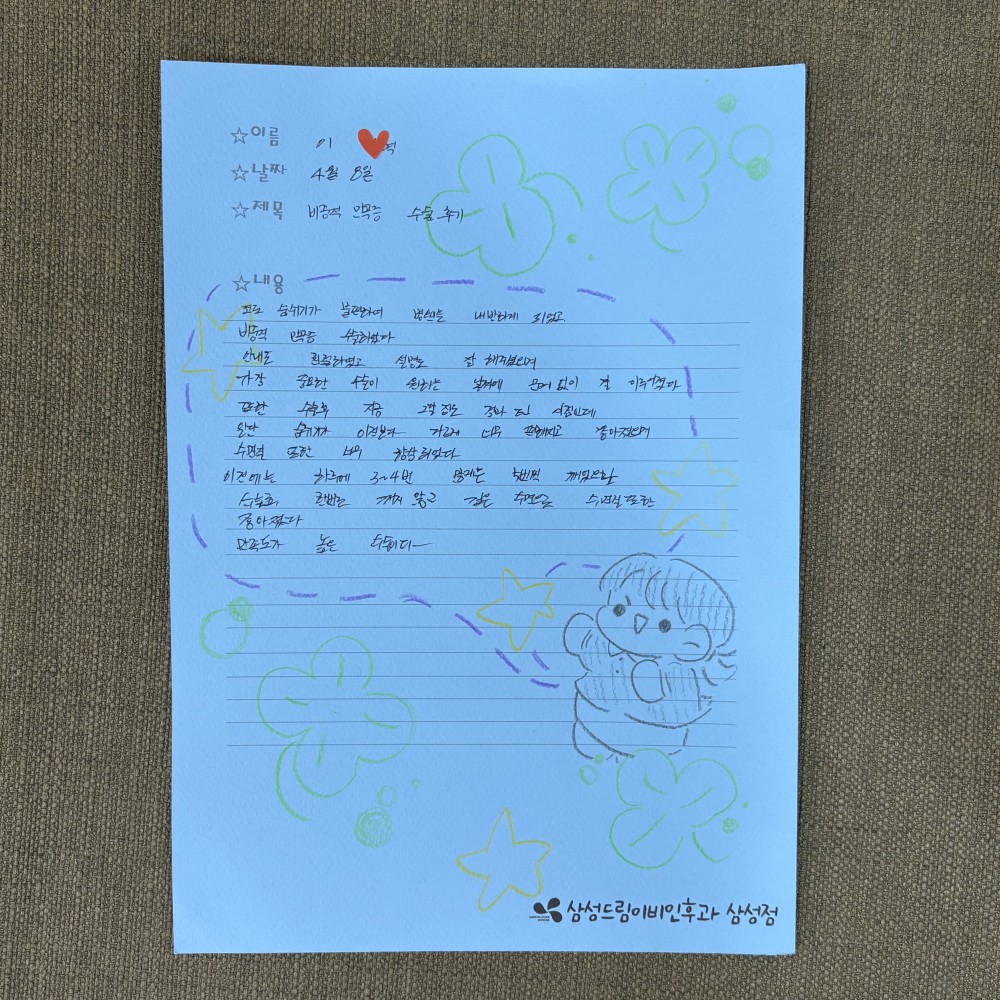 ☆이름 이 역
☆날짜 4월 8일
☆제목 비중격 만곡증 수술 후기
☆내용
코로 숨쉬기가 불편하여 병원을 내반하게 되었고
비중격 만곡증 수술하였다
안내도 친절하였고 설명도 잘 해주셨으며
가장 중요한 수술이 원하는 날짜에 문제 없이 잘 이루어졌다
또한 수술후 지금 2달 정도 경과 된 시점인데
일단 숨쉬기가 이전보다 너무 편해지고 좋아졌으며
수면질 또한 너무 향상되었다
이전에는 하루에 3~4번 많게는 깨었으나
수술후 한번도 깨지 않고 깊은 수면을 수면질 또한
좋아졌다
만족도가 높은 수술이다
삼성드림이비인후과 삼성점